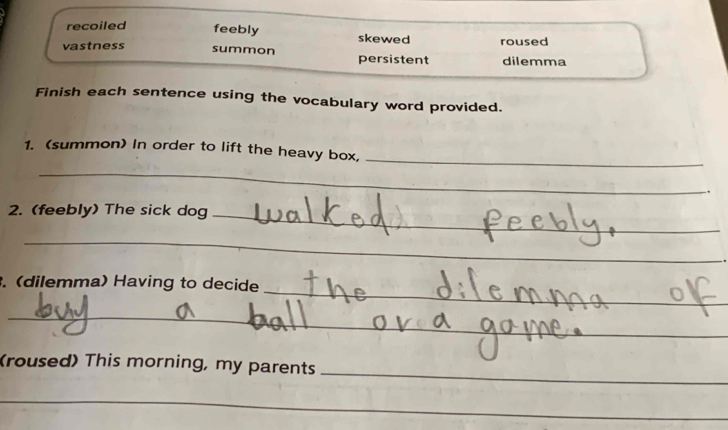 recoiled feebly skewed roused
vastness summon persistent dilemma
Finish each sentence using the vocabulary word provided.
1. (summon) In order to lift the heavy box,
.
2. (feebly) The sick dog walked feebly.
.
. (dilemma) Having to decide the dilemma of
buy a ball or a game.
(roused) This morning, my parents